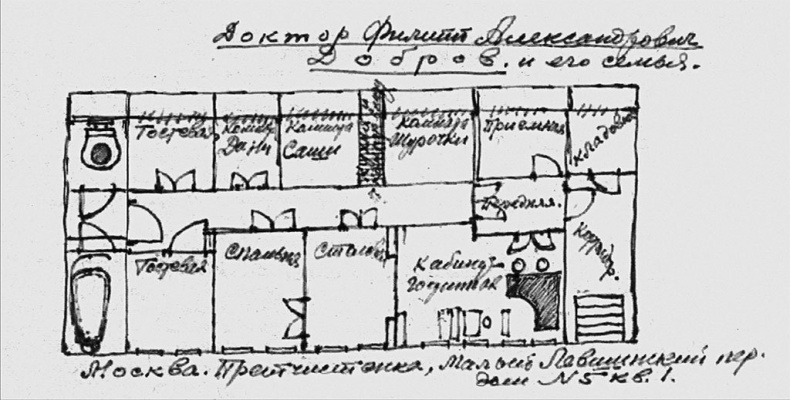 Доктор Филипп Александрович
Добров. и его семья.
Гостевая
Комната
Дани
Комната
Саши
Комната
Шурочки
Приемная
кладовая
Передняя.
Гостевая
Спальня
Столовая
Кабинет
гостинная
Коридор.
Москва. Пречистенка, Малый Левшинский пер.
дом N5 кв. 1.